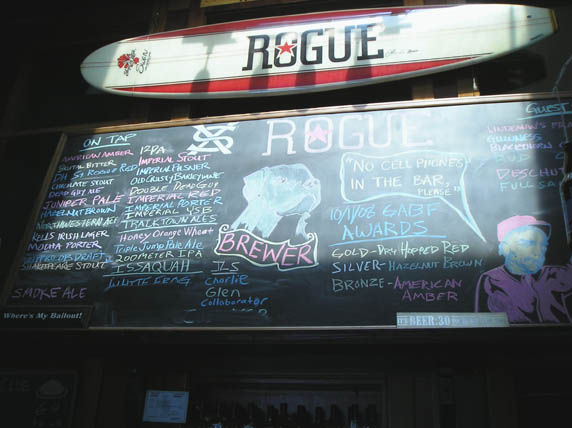 ROGUE
ON TAP
AMERICAN AMBER
BRUTAL BITTER
CHOCOLATE STOUT
DEAD GUY ALE
JUNIPER PALE
HAZELNUT BROWN
KELLS IRISH LAGER
MOCHA PORTER
SHAKESPEARE STOUT
SMOKE ALE
I2PA
IMPERIAL STOUT
IMPERIAL PILSNER
OLD CRUSTY/BARLEYWINE
DOUBLE DEAD GUY
IMPERIAL RED
IMPERIAL PORTER
IMPERIAL YSB
TRACKTOWN ALES
HONEY ORANGE WHEAT
Triple Jump Pale Ale
200 METER IPA
ISSAQUAH
WHITE FROG
XS
ROGUE
BREWER
Charlie
Glen
Collaborator
"NO CELL PHONES
IN THE BAR,
PLEASE"
GABF
AWARDS
GOLD-DRY HOPPED RED
SILVER-HAZELNUT BROWN
BRONZE-AMERICAN
AMBER
GUEST
LINDEMAN'S
GUINNESS
BLACKTHORN
BUD
DESCHUT
FULL SA
Where's My Bailout!
BEER:30